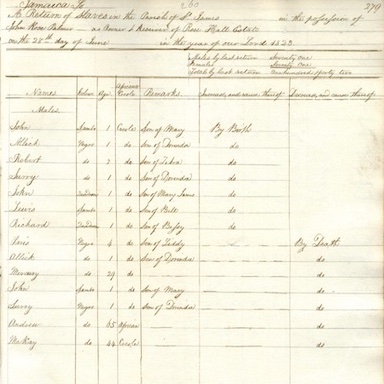 Jamaica Ss 260 279
A Return of Slaves in the Parish of St James in the possession of
John Rose Palmer as Owner & Receiver of Rose Hall Estate
on the 28th day of June in the year of our Lord 1832
Males by last return Seventy one
Females Seventy One
Total by last return One hundred & forty two
Names Colour Age African or Creole Remarks Increase, and cause thereof Decrease, and cause thereof
Males
John Sambo 1 Creole Son of Mary By Birth
Alleck Negro 1 do Son of Dorinda do
Robert do 2 do Son of do
Surry do 1 do Son of Dorinda do
John 1 do Son of Mary James do
Lewis Sambo 1 do Son of do
Richard 1 do Son of Bessy do
Paris Negro 4 do Son of Teddy By Death
Alleck do 1 do Son of Dorinda do
Mercury do 29 do do
John Sambo 1 do Son of Mary do
Surry Negro 1 do Son of Dorinda do
Andrew do 65 African do
McKay do 44 Creole do